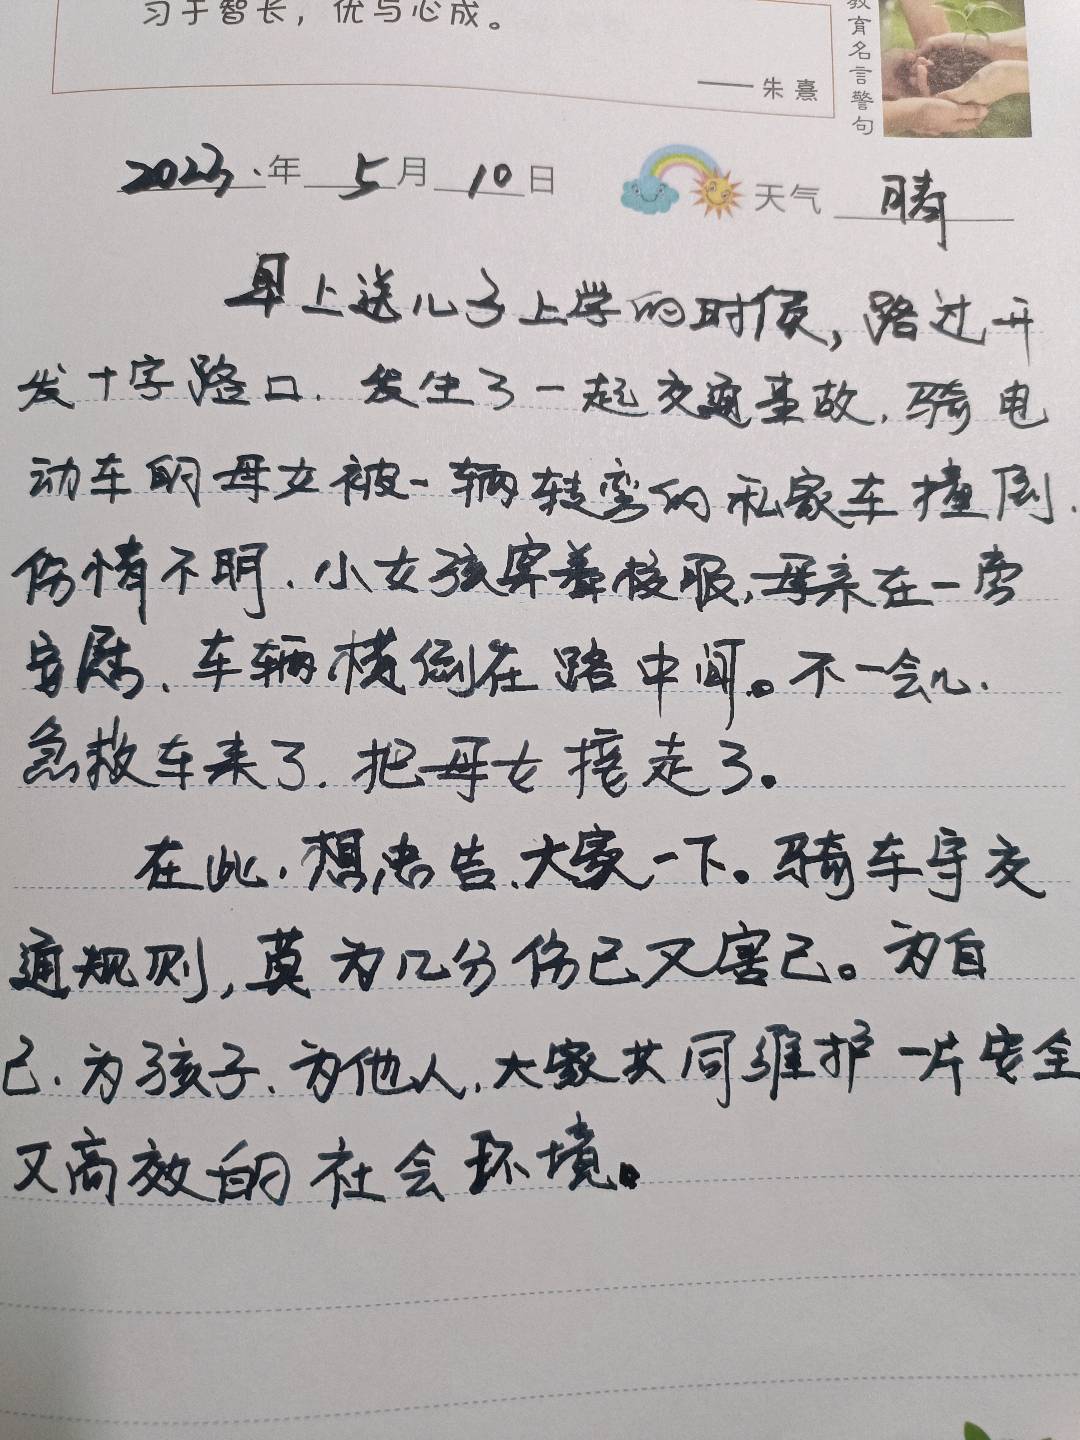 习于智长，优与心成。
——朱熹
教育名言警句
2023年5月10日 天气 晴
早上送儿子上学的时候，路过开
发十字路口，发生了一起交通事故，骑电
动车的母女被一辆转弯的私家车撞倒，
伤情不明，小女孩穿着校服，母亲在一旁
安慰，车辆横倒在路中间。不一会儿，
急救车来了，把母女接走了。
在此，想忠告大家一下。骑车守交
通规则，莫为几分伤己又害己。为自
己，为孩子，为他人，大家共同维护一片安全
又高效的社会环境。